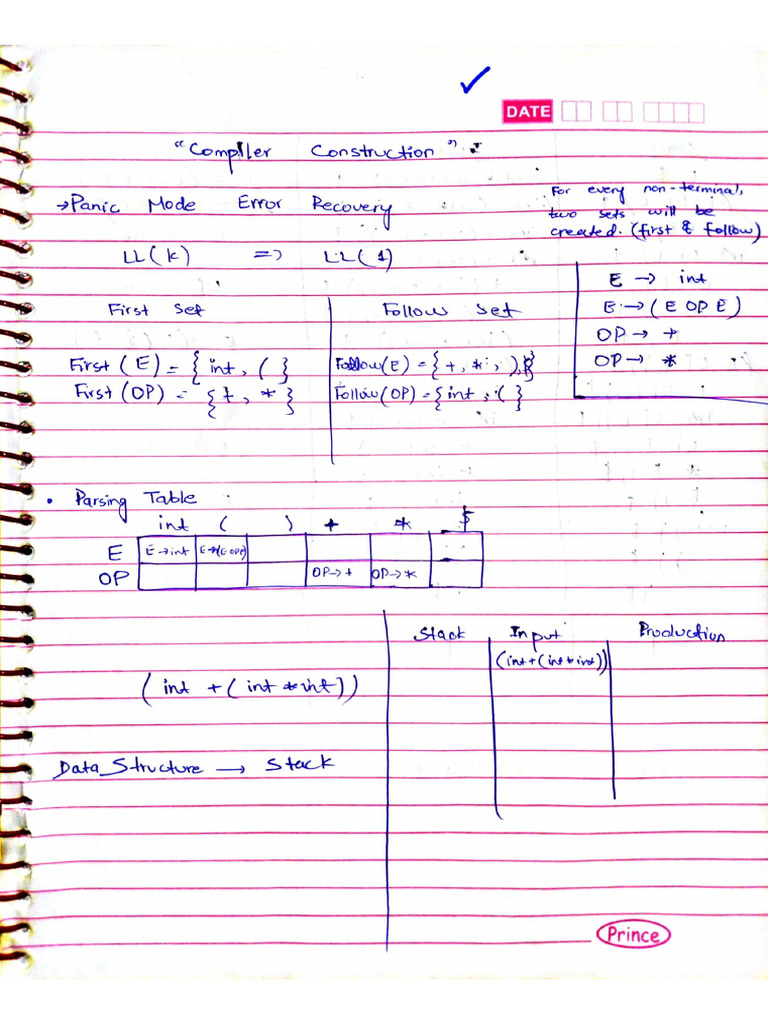 DATE
"Compiler Construction"
→Panic Mode Error Recovery
For every non-terminal,
two sets will be
created. (first & follow)
LL(k) => LL(1)
E → int
E → (E OP E)
OP → +
OP → *
First Set
Follow Set
First(E) = { int, ( }
First(OP) = { +, * }
Follow(E) = { +, *, ),
Follow(OP) = { int, ( }
• Parsing Table
int ( ) + * $
E E→int E→(E OP E)
OP OP→+ OP→*
Stack Input Production
(int+(int*int))
(int + (int * int))
Data Structure → Stack
Prince